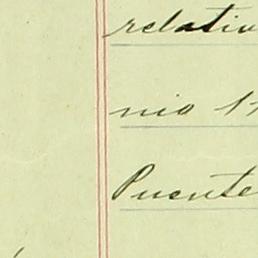 relativ
nio 1
Puente